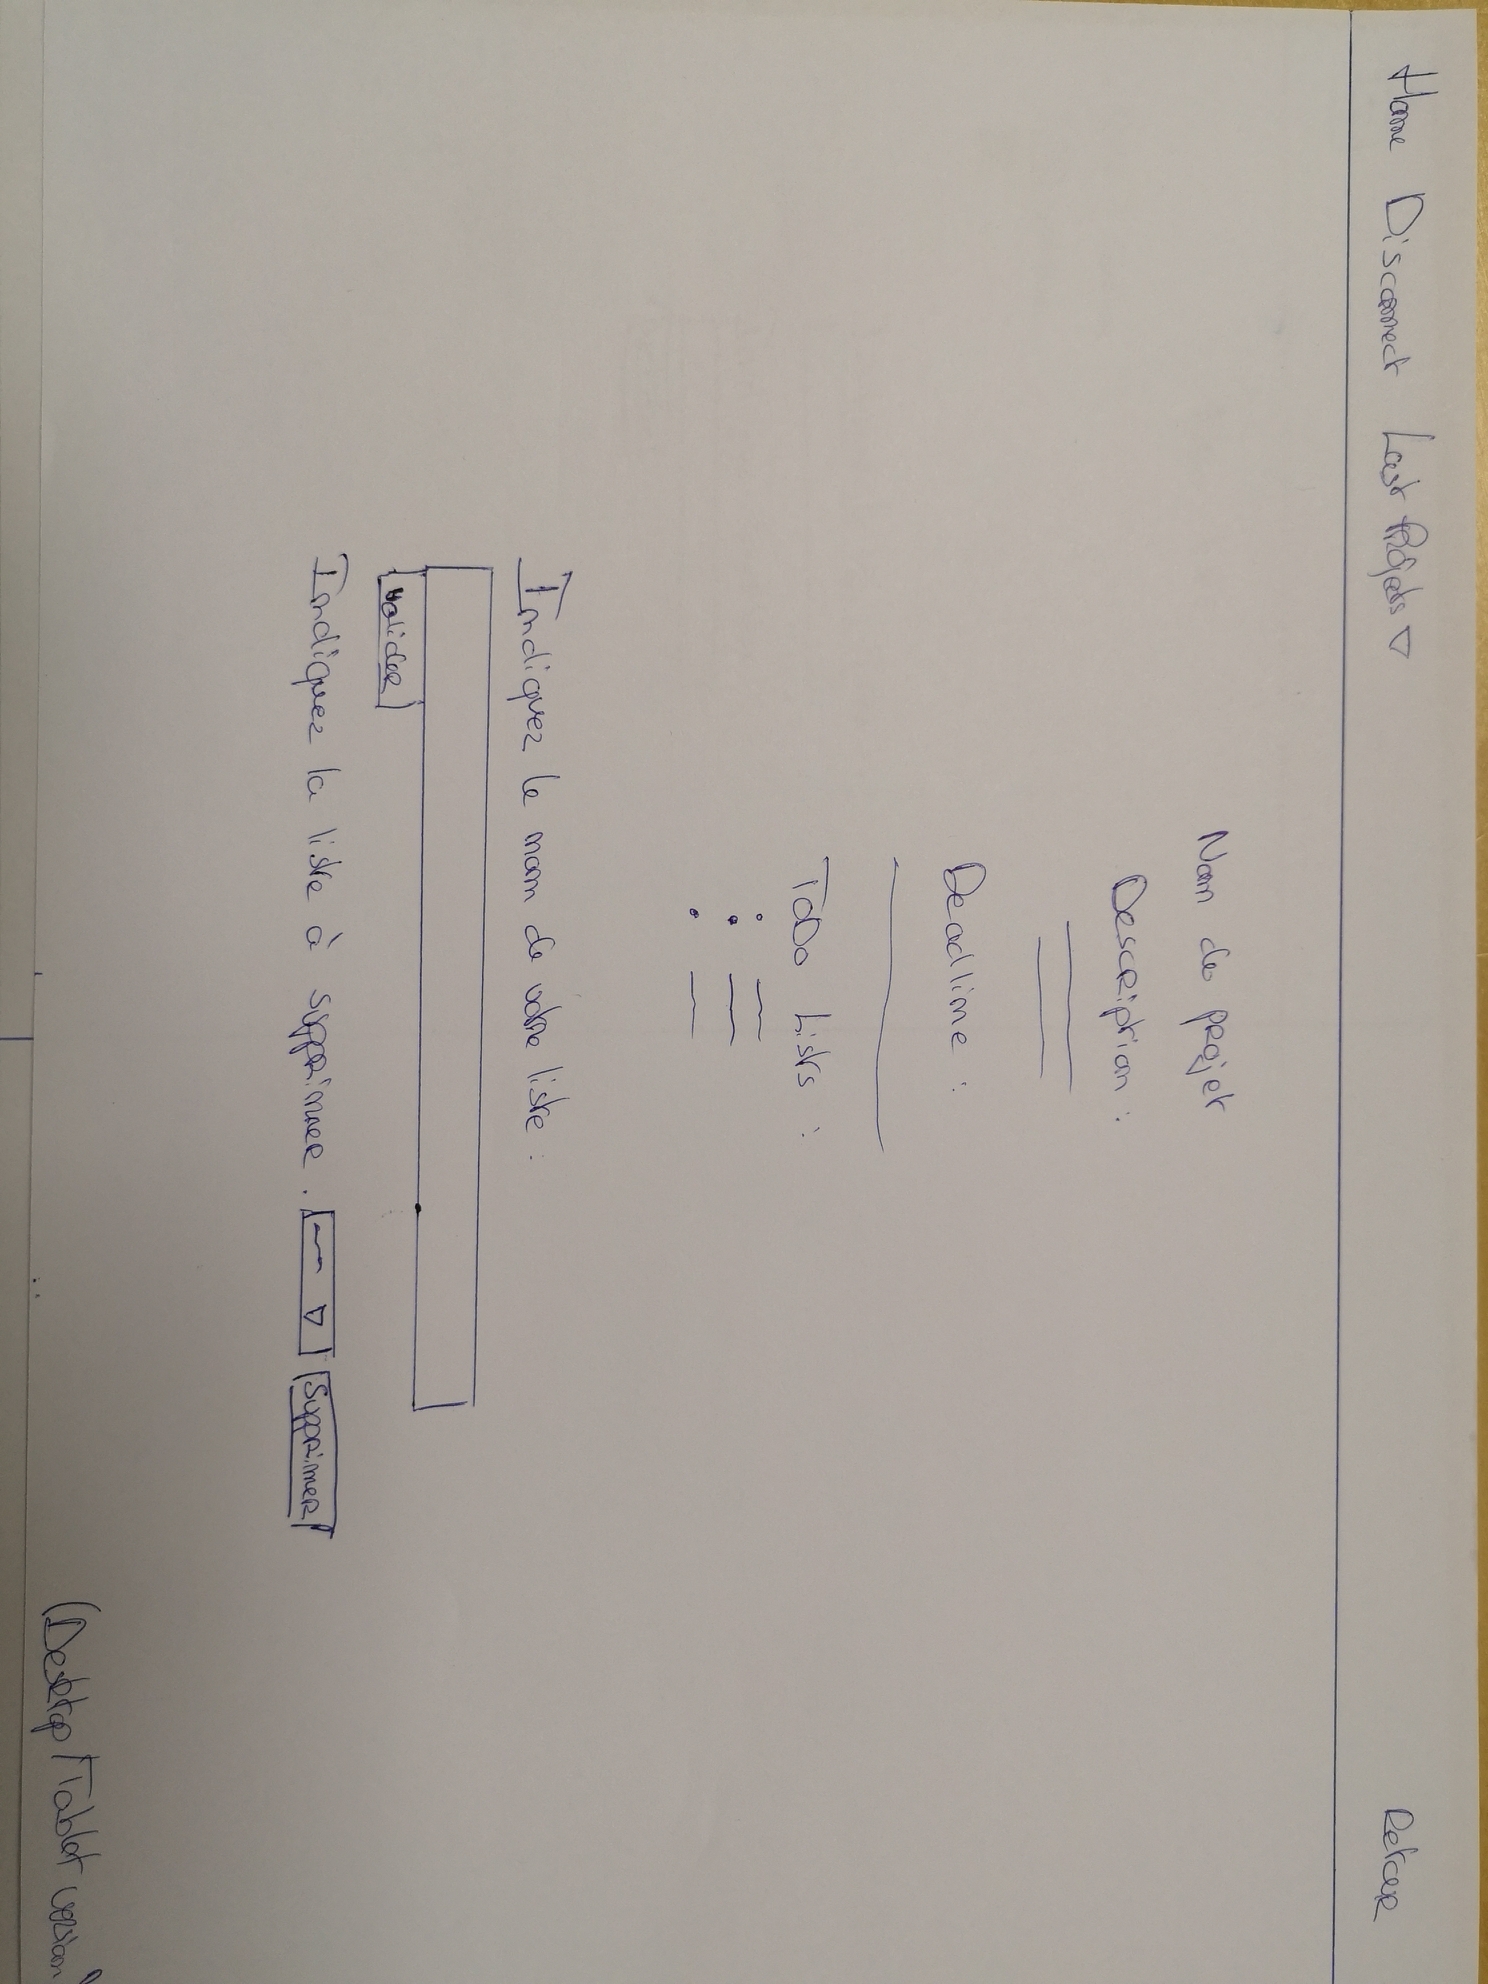 Home Disconnect Last Projets ▽ Retour
Nom de projet
Description :
Deadline :
ToDo Lists :
Indiquez le nom de votre liste :
Valider
Indiquez la liste à supprimer. ▽ Supprimer
(Desktop/Tablet version)